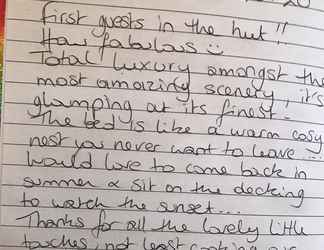 first guests in the hut!!
How fabulous
Total luxury amongst the
most amazing scenery, it's
glamping at its finest.
The bed is like a warm cosy
nest you never want to leave...
Would love to come back in
summer & sit on the decking
to watch the sunset...
Thanks for all the lovely little
touches, not least